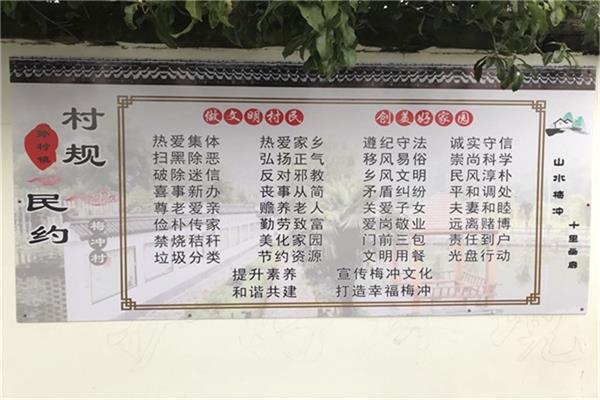 村规
民约
孙村镇
梅冲村
做文明村民 创美好家园
热爱集体 热爱家乡 遵纪守法 诚实守信
扫黑除恶 弘扬正气 移风易俗 崇尚科学
破除迷信 反对邪教 乡风文明 民风淳朴
喜事新办 丧事从简 矛盾纠纷 平和调处
尊老爱亲 赡养老人 关爱子女 夫妻和睦
俭朴传家 勤劳致富 爱岗敬业 远离赌博
禁烧秸秆 美化家园 门前三包 责任到户
垃圾分类 节约资源 文明用餐 光盘行动
提升素养 宣传梅冲文化
和谐共建 打造幸福梅冲
山水梅冲
十里画廊